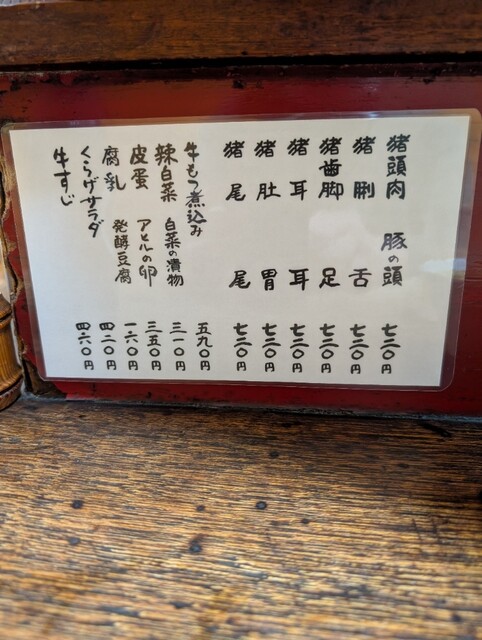 猪頭肉 豚の頭 七三〇円
猪脷 舌 七三〇円
猪歯脚 足 七三〇円
猪耳 耳 七三〇円
猪肚 胃 七三〇円
猪尾 尾 七三〇円
牛もつ煮込み 五九〇円
辣白菜 白菜の漬物 三一〇円
皮蛋 アヒルの卵 三五〇円
腐乳 発酵豆腐 一六〇円
くらげサラダ 四二〇円
牛すじ 四六〇円